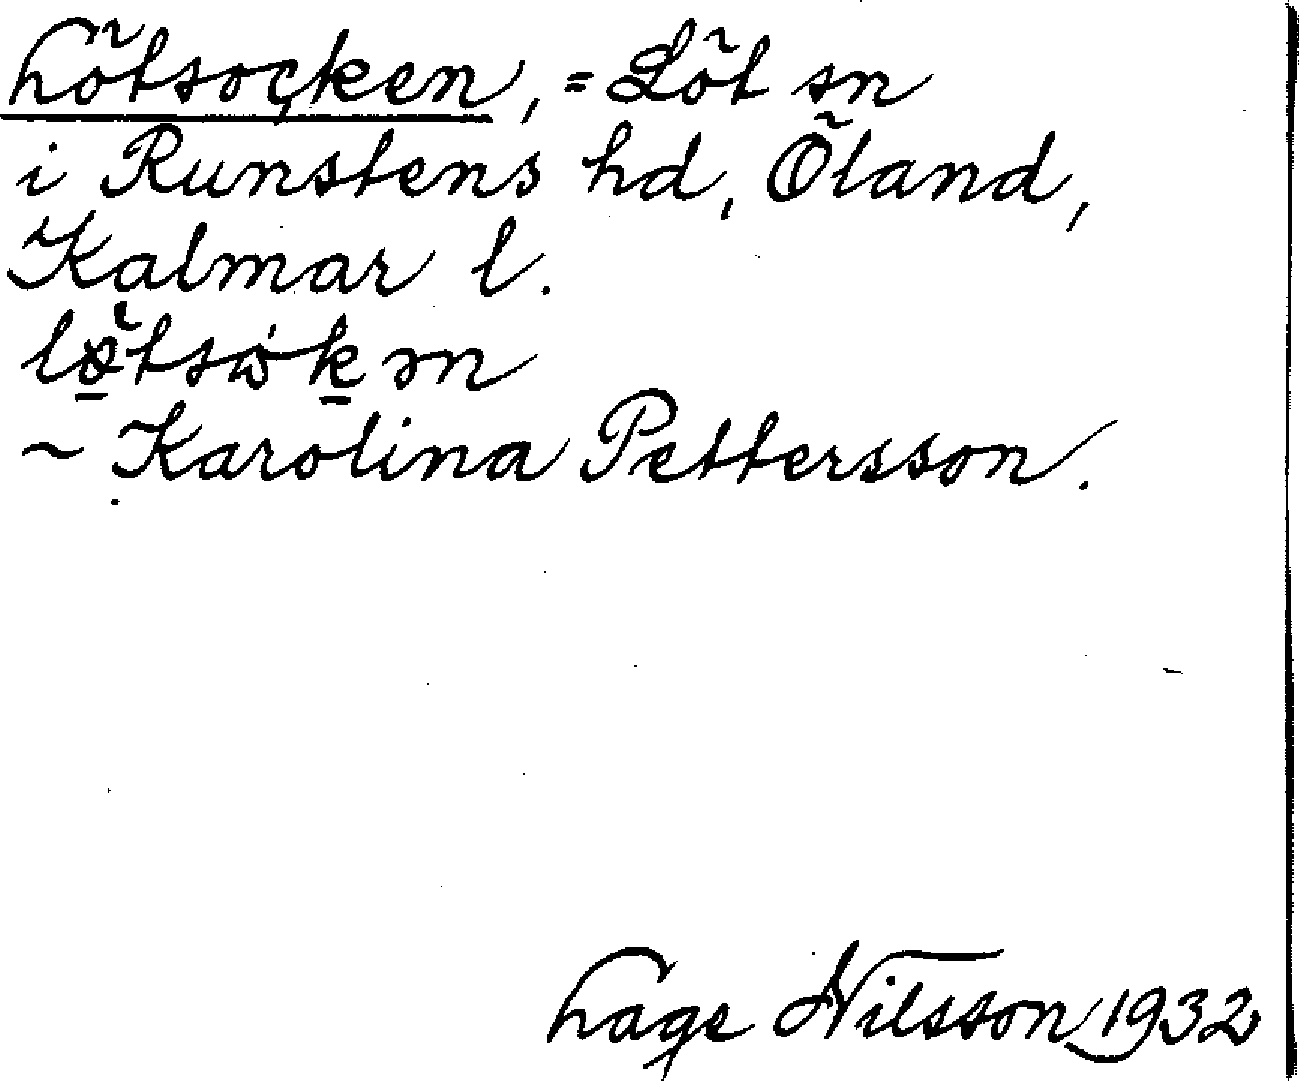 Lötsocken, = Löt sn
i Runstens hd, Öland,
Kalmar l.
~ Karolina Pettersson.
Lage Nilsson 1932